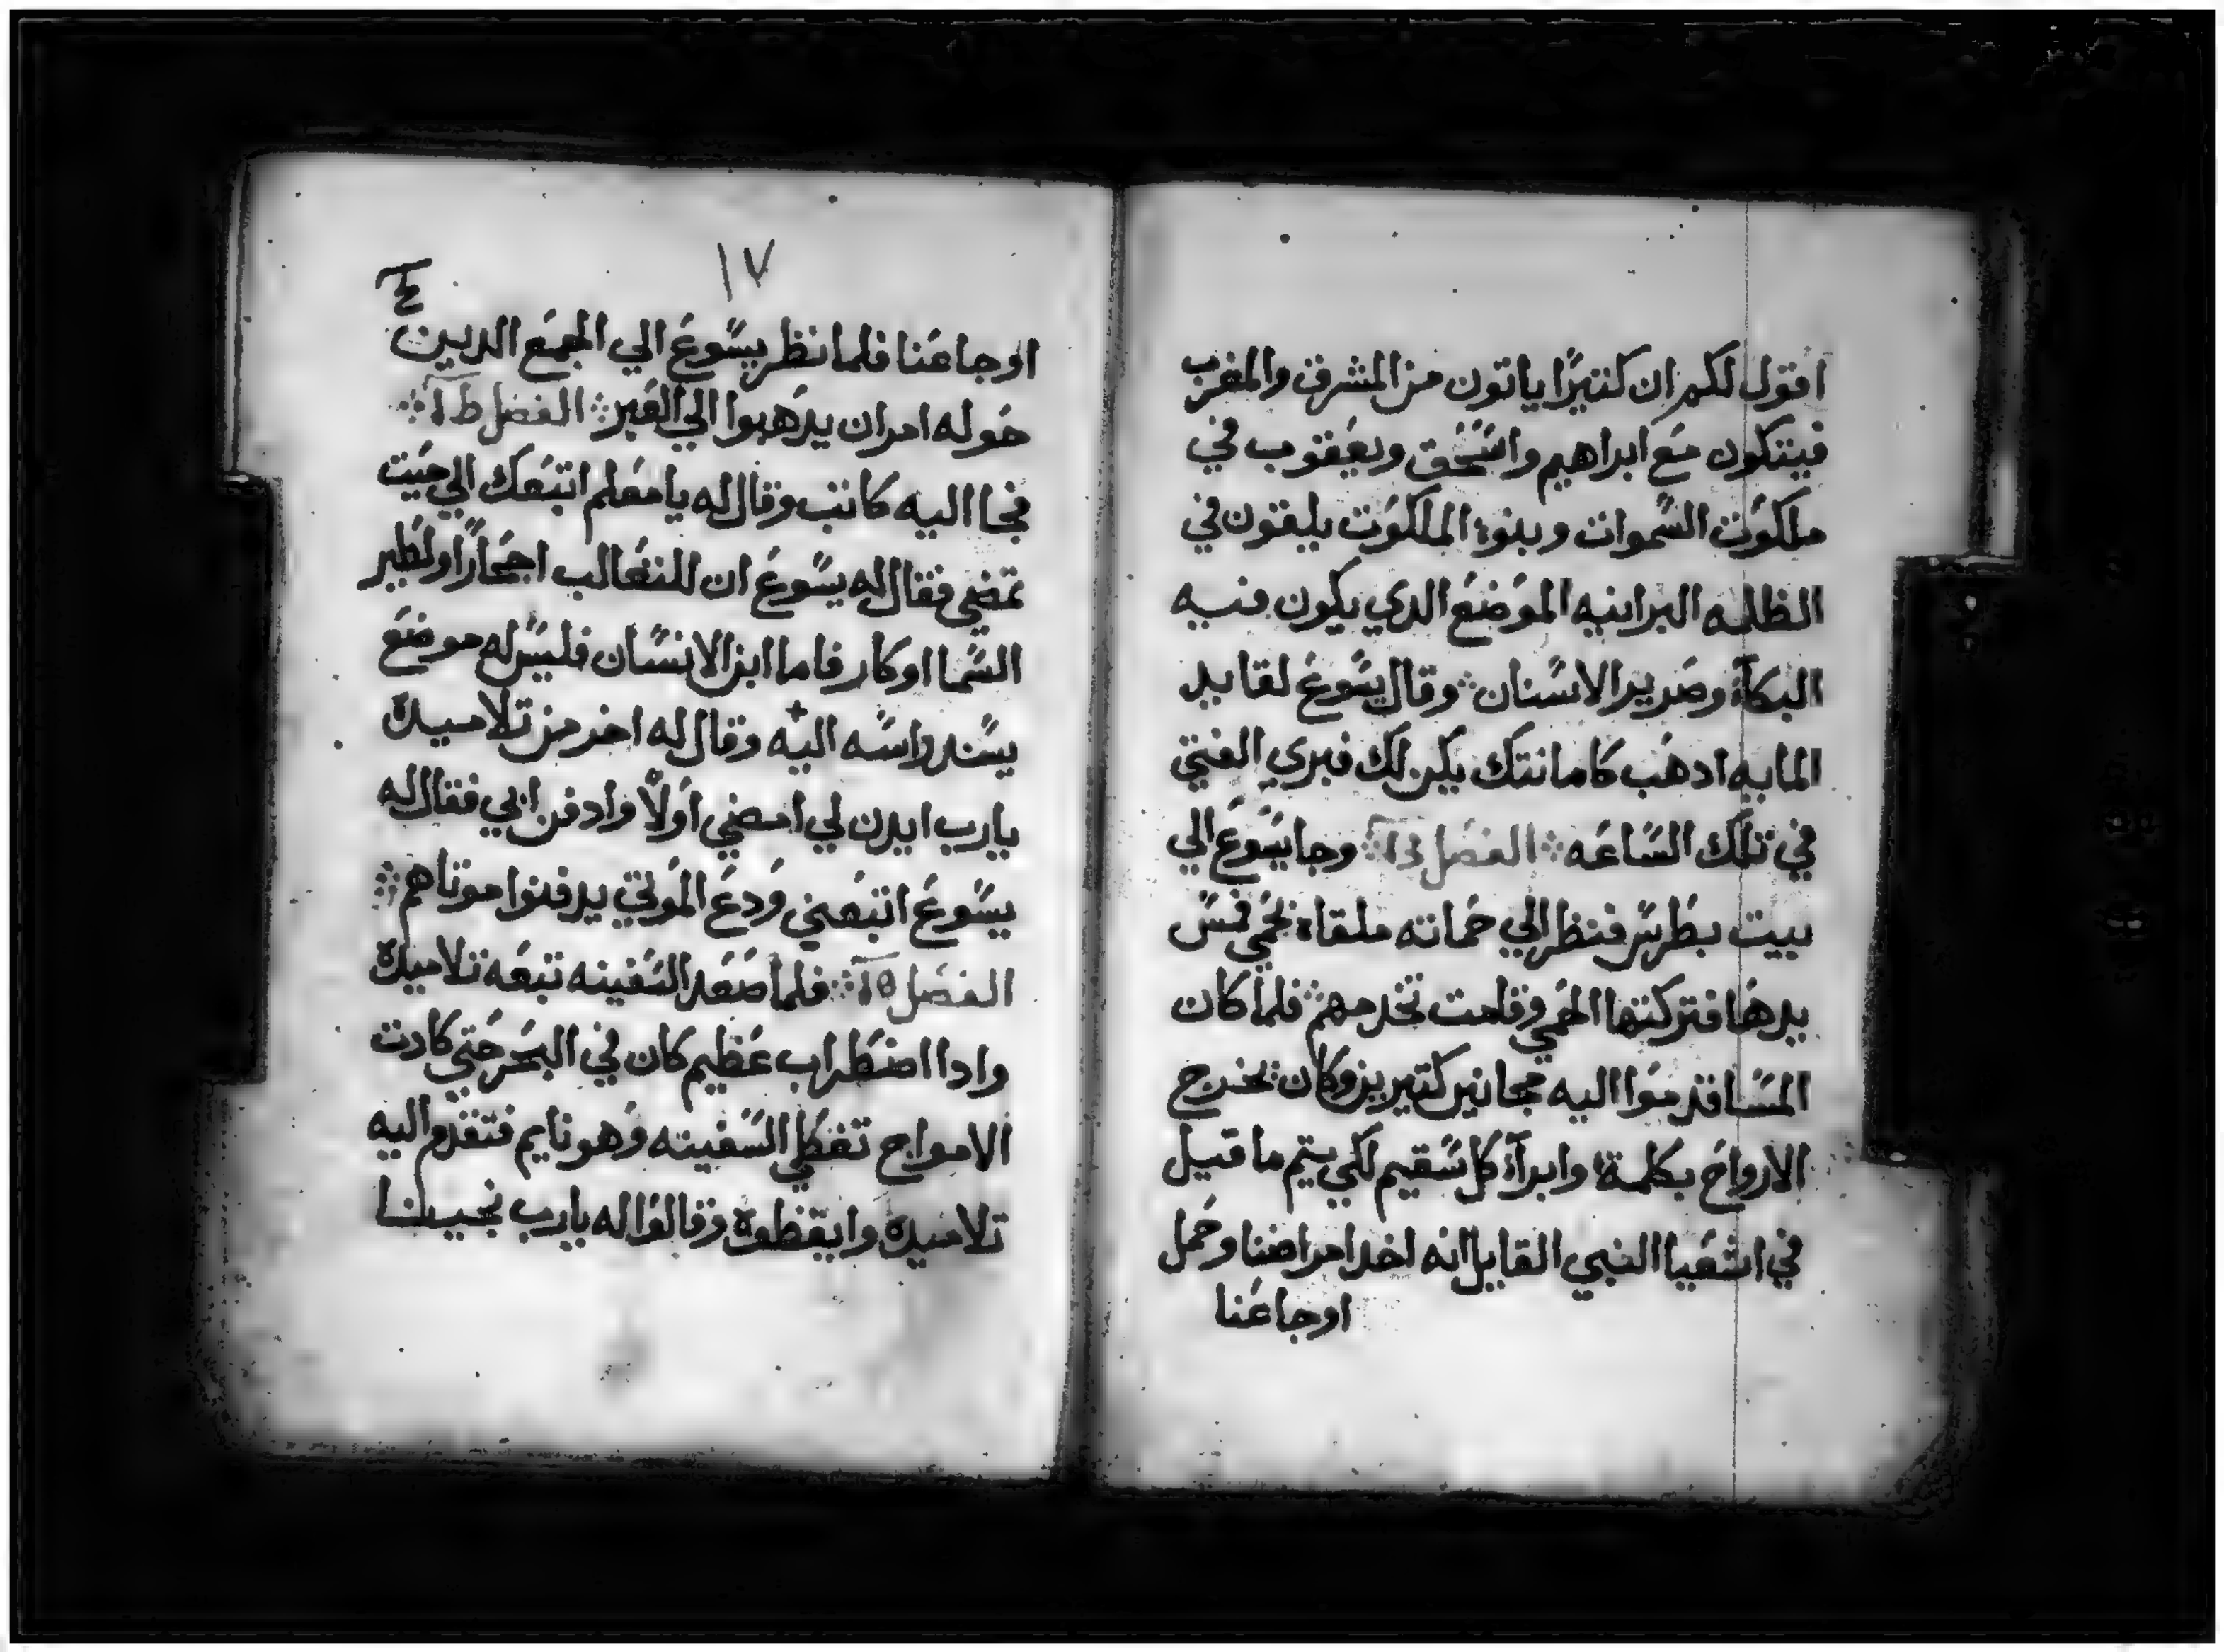 اقول لكم ان كتيرًا ياتون من المشرق والمغرب
فيتكون مع ابراهيم واسحق ويعقوب في
ملكوت السموات وبنوا الملكوت يلقون في
الظلمه البرانيه الموضع الدي يكون فيه
البكآء وصرير الاسنان ܀ وقال يسوع لقايد
المايه ادهب كامانتك يكن لك فبري الفتي
في تلك الساعه ܀ الفصل ܀ وجا يسوع الي
بيت بطرس فنظر الي حماته ملقاه تحمي فمس
يدها فتركتها الحمي وقامت تخدمهم ܀ فلما كان
المسا قدموا اليه مجانين كتيرين وكان يخرج
الارواح بكلمة وابرآء كل سقيم لكي يتم ما قيل
في اشعيا النبي القايل انه اخد امراضنا وحمل
اوجاعنا
١٧
اوجاعنا فلما نظر يسوع الي الجمع الدين
حوله امر ان يدهبوا الي العبر ܀ الفصل ط١ ܀
فجا اليه كاتب وقال له يا معلم اتبعك الي حيت
تمضي فقال له يسوع ان للتعالب اجحارًا ولطير
السما اوكار فاما ابن الانسان فليس له موضع
يسند راسه اليه وقال له اخر من تلاميده
يا رب ايدن لي امضي اولًا وادفن ابي فقال له
يسوع اتبعني ودع الموتي يدفنوا موتاهم ܀
الفصل ܀ فلما صعد السفينه تبعه تلاميده
وادا اضطراب عظيم كان في البحر حتي كادت
الامواج تغطي السفينه وهو نايم فتقدم اليه
تلاميده وايقظوه وقالوا له يا رب نجينا